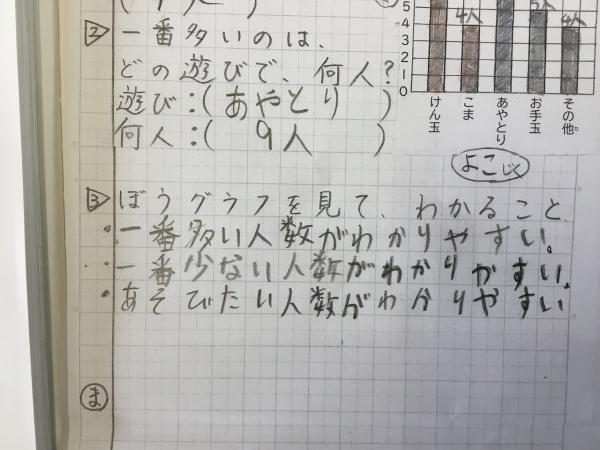 5
4
3
2
1
0
4人
5人
4人
けん玉
こま
あやとり
お手玉
その他
よこじく
2 一番多いのは、
どの遊びで、何人?
遊び:(あやとり)
何人:(9人)
3 ぼうグラフを見て、わかること
・一番多い人数がわかりやすい。
・一番少ない人数がわかりかすい。
・あそびたい人数がわかりやすい
ま